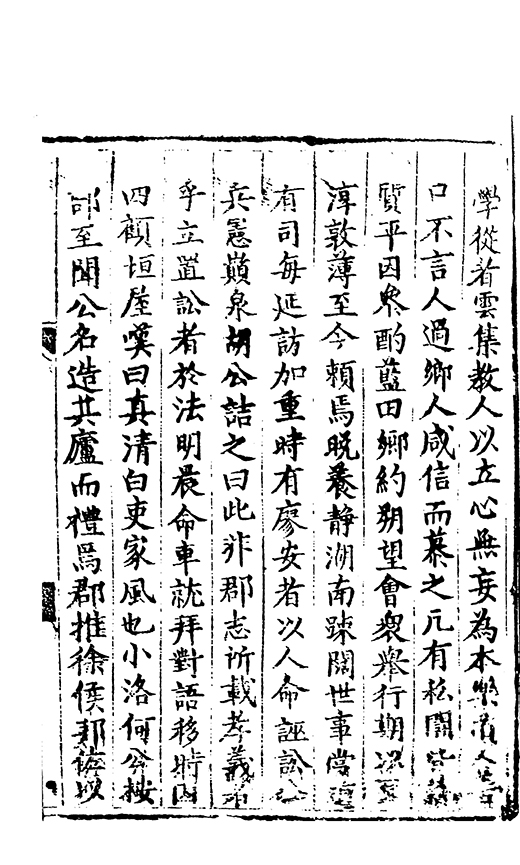 學從者雲集教人以立心無妄為本樂道人善
口不言人過鄉人咸信而慕之凢有私鬩皆
質平因衆酌藍田鄉約朔望會衆舉行期洽
淳敦薄至今賴焉晚養静湖南踈闊世事當道
有司每延訪加重時有廖安者以人命誣訟公
兵憲巔泉胡公詰之曰此非郡志所載孝義
乎立置訟者於法明晨命車就拜對語移時因
四顧垣屋嘆曰真清白吏家風也小洛何公按
部至聞公名造其廬而禮焉郡推徐侯邦佐以